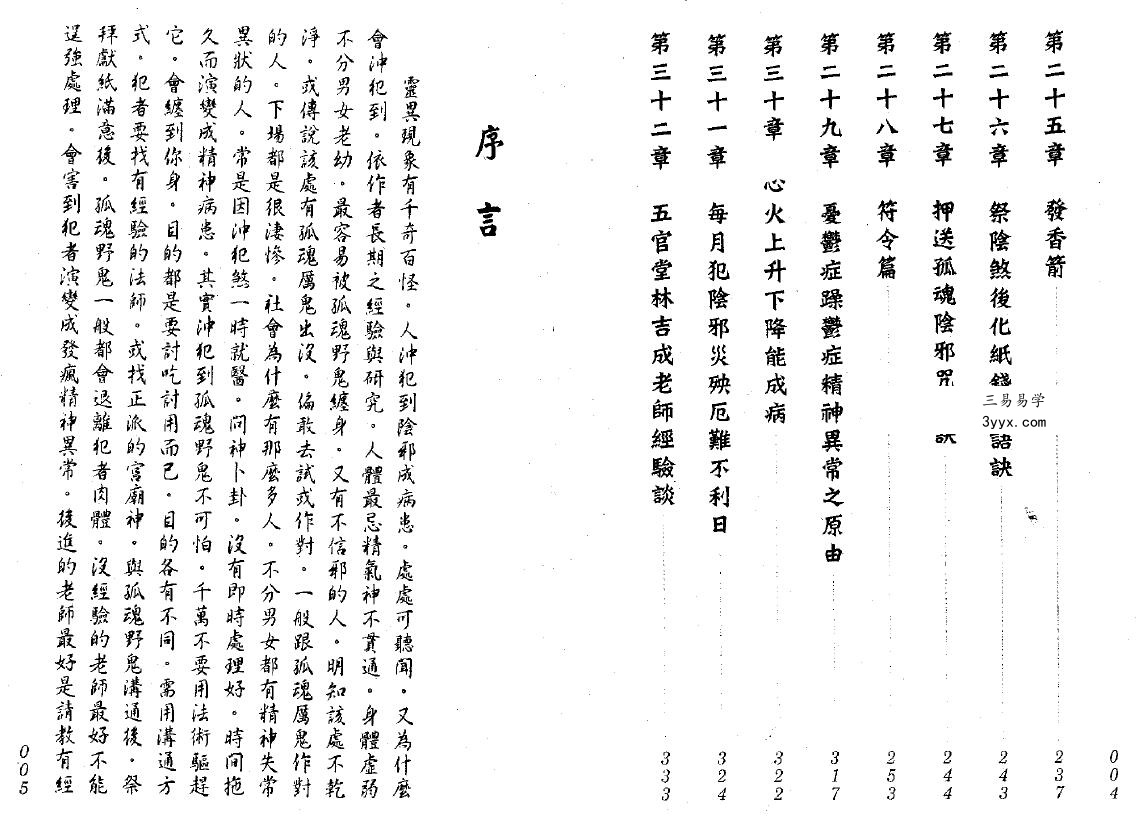 004
第二十五章　發香箭　237
第二十六章　祭陰煞後化紙錢　語訣　243
第二十七章　押送孤魂陰邪咒　訣　244
第二十八章　符令篇　253
第二十九章　憂鬱症躁鬱症精神異常之原由　317
第三十章　心火上升下降能成病　322
第三十一章　每月犯陰邪災殃厄難不利日　324
第三十二章　五官堂林吉成老師經驗談　333
三易易学
3yyx.com
序言
靈異現象有千奇百怪。人沖犯到陰邪成病患。處處可聽聞。又為什麼
會沖犯到。依作者長期之經驗與研究。人體最忌精氣神不貫通。身體虛弱
不分男女老幼。最容易被孤魂野鬼纏身。又有不信邪的人。明知該處不乾
淨。或傳說該處有孤魂厲鬼出沒。偏敢去試或作對。一般跟孤魂厲鬼作對
的人。下場都是很淒慘。社會為什麼有那麼多人。不分男女都有精神失常
異狀的人。常是因沖犯煞一時就醫。問神卜卦。沒有即時處理好。時間拖
久而演變成精神病患。其實沖犯到孤魂野鬼不可怕。千萬不要用法術驅趕
它。會纏到你身。目的都是要討吃討用而已。目的各有不同。需用溝通方
式。犯者要找有經驗的法師。或找正派的宮廟神。與孤魂野鬼溝通後。祭
拜獻紙滿意後。孤魂野鬼一般都會退離犯者肉體。沒經驗的老師最好不能
逞強處理。會害到犯者演變成發瘋精神異常。後進的老師最好是請教有經
005